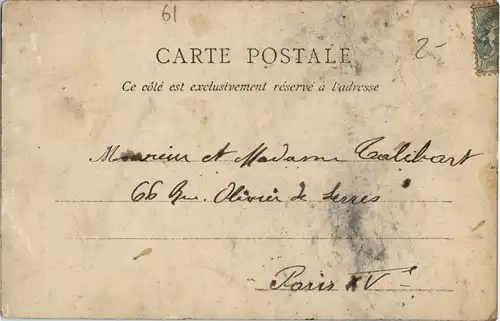 61
2-
CARTE POSTALE
Ce côté est exclusivement réservé à l'adresse
Monsieur et Madame Talibart
66 Rue. Olivier de Serres
Paris XV